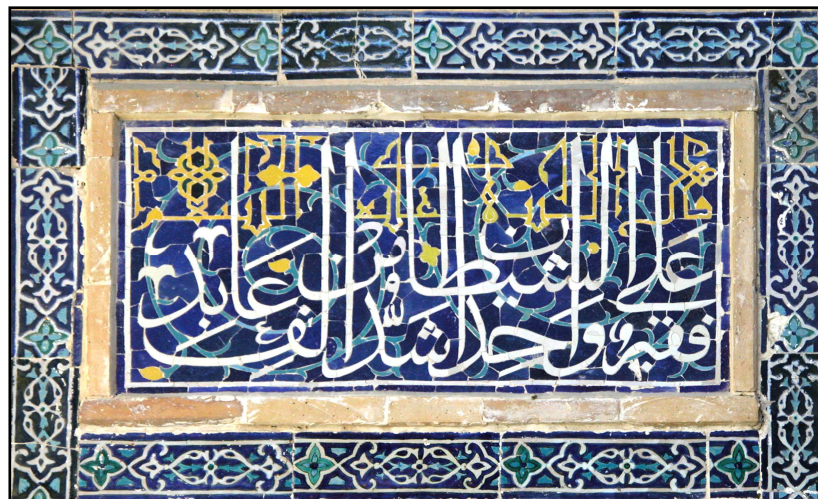 فقيه واحد اشد على الشيطان من الف عابد